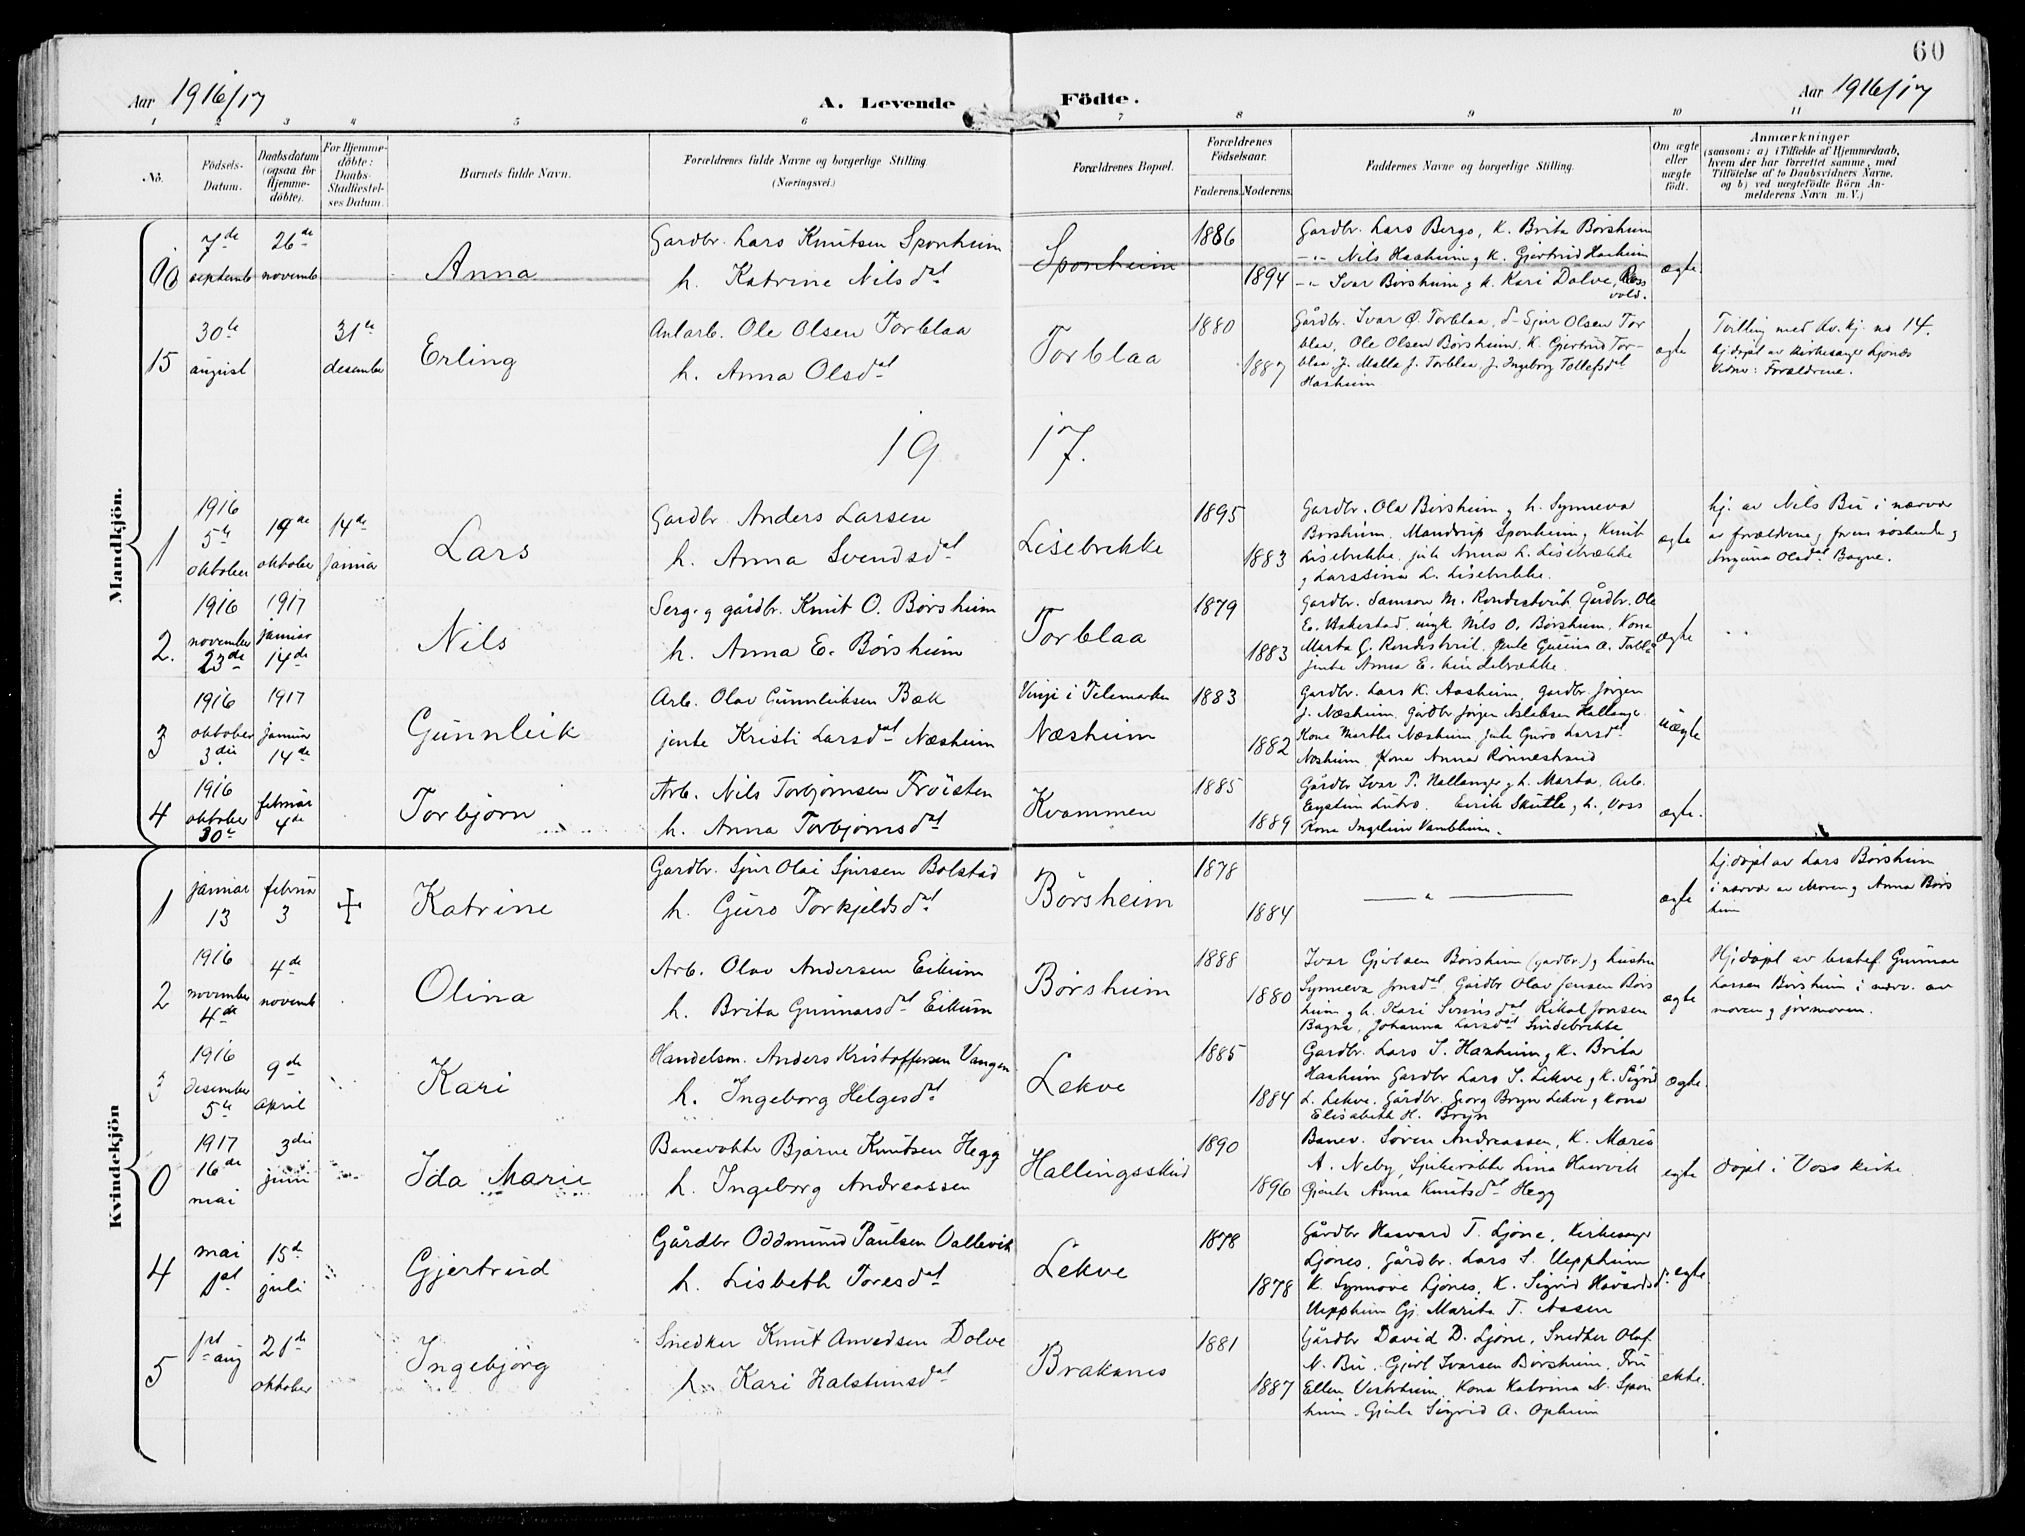 60
Aar 1916/17
A. Levende Födte.
Aar 1916/17
1 2 3 4 5 6 7 8 9 10 11
No.
Födsels-Datum.
Daabsdatum (ogsaa for Hjemme-döbte).
For Hjemme-döbte: Daabs-Stadfæstel-ses Datum.
Barnets fulde Navn.
Forældrenes fulde Navne og borgerlige Stilling
(Næringsvei.)
Forældrenes Bopæl.
Forældrenes Födselsaar.
Faderens. Moderens.
Faddernes Navne og borgerlige Stilling.
Om ægte eller uægte født.
Anmærkninger
(saasom: a) i Tilfælde af Hjemmedaab,
hvem der har forrettet samme, med
Tilföielse af to Daabsvidners Navne.
og b) ved uægtefödte Börn An-
melderens Navn m. V.)
Mandkjön.
7de septemb
26de novemb
Anna
Gardbr. Lars Knutsen Sponheim
h. Katrine Nilsdat
Sponheim
1886
1894
Gardbr. Lars Bergo, K. Brita Børsheim
-"- Nils Haaheim g K. Gjertrud Haaheim
-"- Ivar Børsheim g K. Kari Dolve,
ægte
15
30te august
31te desember
Erling
Anlarb. Ole Olsen Torblaa
h. Anna Olsdat
Torblaa
1880
1887
Gårdbr. Ivar Ø. Torblaa, Sjur Olsen Tor
blaa, Ole Olsen Børsheim, K. Gjertrud Tor-
blaa J. Malla J. Torblaa J. Ingeborg Tollefsdat
Haaheim
ægte
Tvilling med Kv.kj. no 14.
hj.døpt av kirkesanger Ljones
Vidner: Forældrene.
1917.
1
1916 5te oktober
19de oktober
14de januar
Lars
Gardbr. Anders Larsen
h. Anna Svendsdat
Lisebrekke
1895
1883
Gardbr. Ola Børsheim g h. Synneva
Børsheim, Mandrup Sponheim g Knut
Lisebrekke. jente Anna L. Lisebrække
g Larstina L. Lisebrekke.
ægte
hj. av Nils Bu i nærvær
av forældrene g frem søskende g
Olsdat Bagne.
2.
1916 november 23de
1917 januar 14de
Nils
Serg. g gårdbr. Knut O. Børsheim
h. Anna E. Børsheim
Torblaa
1879
1883
Gardbr. Samson M. Rondestveit Gårdbr. Ole
E. Hakestad ungk Nils O. Børsheim, Kona
Marta G. Rondestveit. Jente Gunna A. Torblå
jente Anna E. Lindebrække.
ægte
3
1916 oktober 3die
1917 januar 14de
Gunnleik
Arb. Olav Gunnleiksen Bæk
jente Kristi Larsdat Næsheim
Vinje i Telemarken
Næsheim
1883
1882
Gardbr. Lars K. Aasheim, gardbr. Jørgen
J. Næsheim. Gårdbr Jørgen Aslaksen Hallanger.
Kone Marthe Næsheim jente Guro Larsdat
Næsheim Kona Anna Rønnestrand
uægte
4
1916 oktober 30te
februar 4de
Torbjørn
Arb. Nils Torbjørnsen Frøisten
h. Anna Torbjørnsdat
Kvammen
1885
1889
Gårdbr Ivar P. Hallanger g h. Marta, Arb.
Eystein Lutro. Eirik Skutle g h. Voss
Kona Ingelina Vambheim.
ægte.
Kvindekjön
1
januar 13
februar 3
Katrine
Gardbr. Sjur Olai Sjursen Bolstad
h. Guro Torkjeldsdat
Børsheim
1878
1884
— " —
ægte
hj.døpt av Lars Børsheim
i nærvær av Moren g Anna Børs
heim
2
1916 november 4de
4de novemb
Olina
Arb. Olav Andersen Eikum
h. Brita Gunnarsdat Eikum
Børsheim
1888
1880
Ivar Gjertsen Børsheim (gardbr.) g hustru
Synneva Jonsdat, Gårdbr Olav Jensen Børs
heim g h. Kari Svensdat, Rikal Jonsen
Bagne, Johanna Larsdat Lindebrekke
ægte
Hj.døpt av bestef. Gunnar
Larsen Børsheim i nærv. av
moren g jormoren.
3
1916 desember 5te
9de april
Kari
Handelsm. Anders Kristoffersen Vangen
h. Ingeborg Helgesdat
Lekve
1885
1884
Gardbr. Lars I. Haaheim g K. Brita
Haaheim Gardbr Lars S. Lekve g K. Sigrid
L. Lekve. Gårdbr. Georg Bryn Lekve g Kona
Elisabeth H. Bryn
ægte.
0
1917 16de mai
3die juni
Ida Marie
Banevokter Bjarne Knutsen Hegg
h. Ingeborg Andreassen
Hallingsskeid
1890
1896
Banev. Søren Andreassen, K. Marie
A. Neby, Lina Haarvik
Gjente Anna Knutsdat Hegg
egte
døpt i Voss kirke.
4
mai 1st
15de juli
Gjertrud
Gårdbr Oddmund Paulsen Vallevik
h. Lisbeth Toresdat
Lekve
1878
1878
Gårdbr Haavard T. Ljone, Kirkesanger
Ljones, Gårdbr. Lars S. Uepphiim
K. Synnove Ljones, K. Sigrid Håvardsd.
Uepphiim Gj. Marita T. Aasen
egte
5
1st aug
21de oktober
Ingebjørg
Snedker Knut Amedsen Dolve
h. Kari Halsteinsdat
Brakanes
1881
1887
Gårdbr David D. Ljone, Snedker Olaf
N. Bu. Gjert Ivarsen Børsheim, Fru
Ellen Vestrheim, Kona Katrina N. Spon
heim. Gjente Sigrid A. Opheim
ekte.